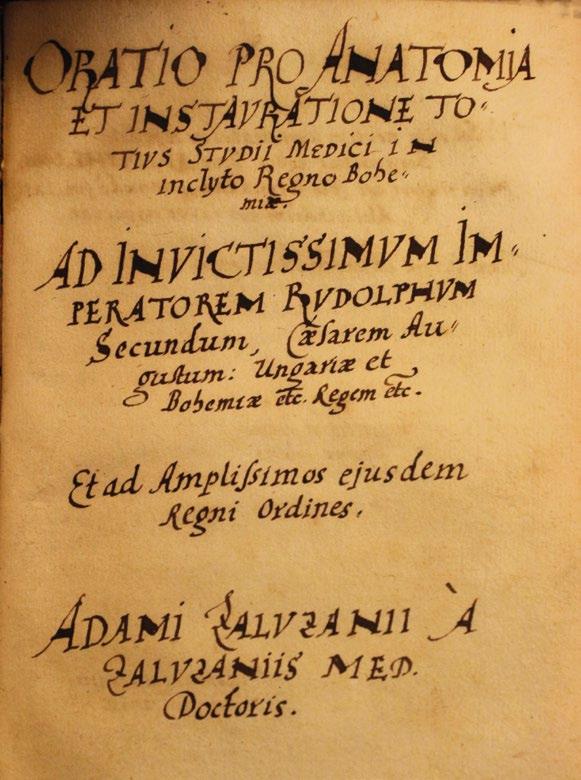 ORATIO PRO ANATOMIA
ET INSTAVRATIONE TO-
TIVS STVDII MEDICI IN
inclyto Regno Bohe-
miæ.
AD INVICTISSIMVM IM-
PERATOREM RVDOLPHVM
Secundum, Cæsarem Au-
gustum: Ungariæ et
Bohemiæ etc. Regem etc.
Et ad Amplissimos ejusdem
Regni Ordines.
ADAMI ZALVZANII À
ZALVZANIIS MED.
Doctoris.